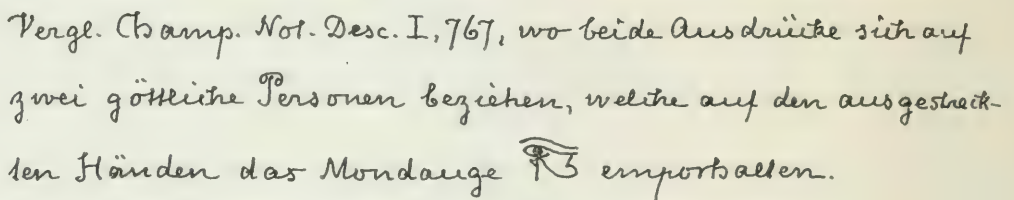 Vergl. Champ. Not. Desc. I, 767, wo beide Ausdrücke sich auf
zwei göttliche Personen beziehen, welche auf den ausgestreck-
ten Händen das Mondauge 𓂀 emporhalten.